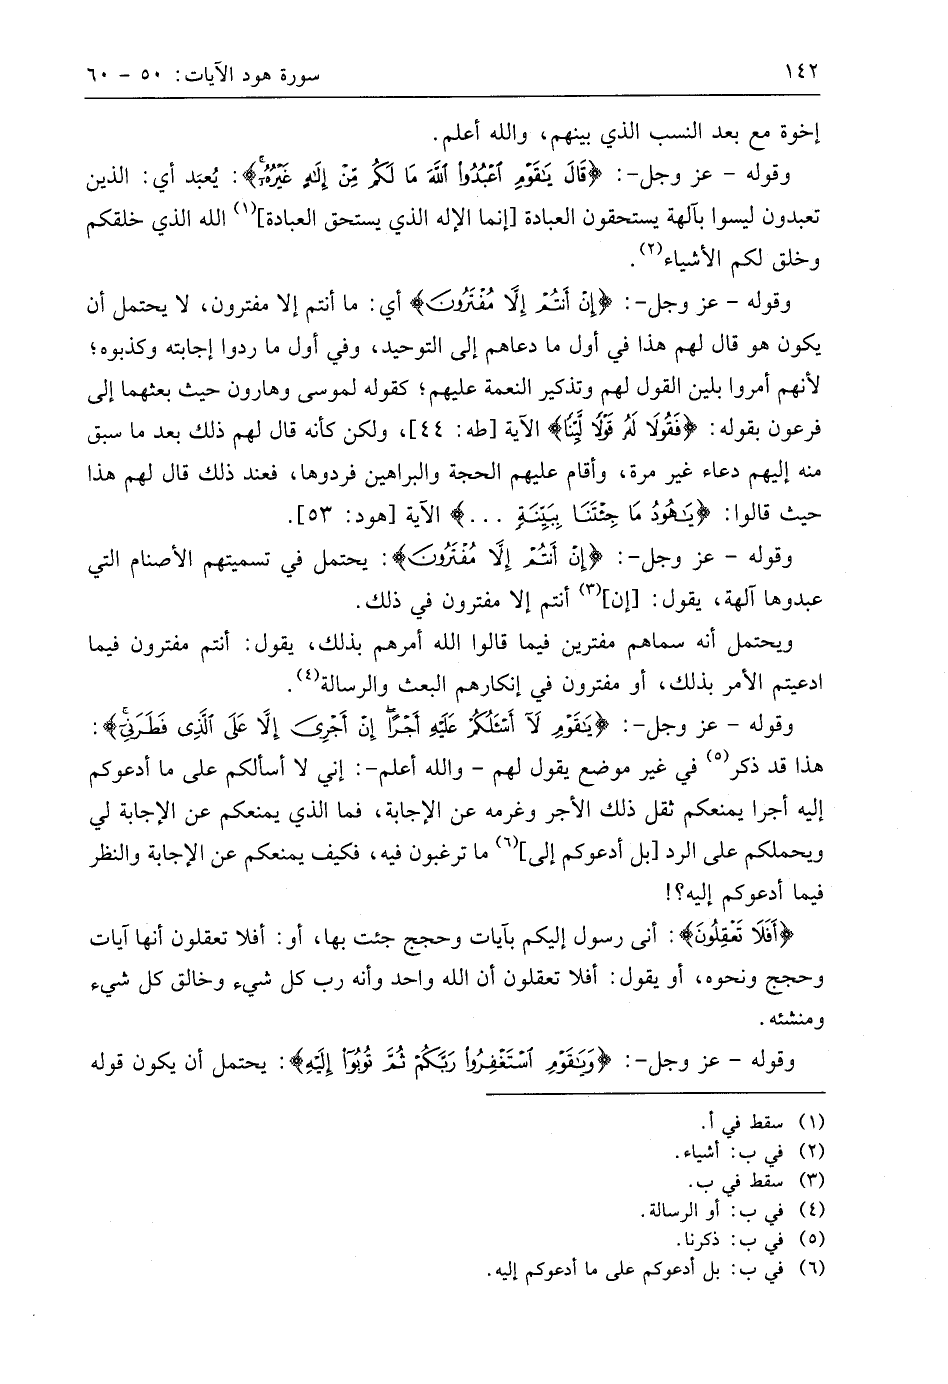 ١٤٢
سورة هود الآيات: ٥٠ - ٦٠
إخوة مع بعد النسب الذي بينهم، والله أعلم.
وقوله - عز وجل-: ﴿قَالَ يَـٰقَوْمِ ٱعْبُدُوا۟ ٱللَّهَ مَا لَكُم مِّنْ إِلَـٰهٍ غَيْرُهُۥٓ﴾: يُعبَد أي: الذين
تعبدون ليسوا بآلهة يستحقون العبادة [إنما الإله الذي يستحق العبادة](١) الله الذي خلقكم
وخلق لكم الأشياء(٢).
وقوله - عز وجل-: ﴿إِنْ أَنتُمْ إِلَّا مُفْتَرُونَ﴾ أي: ما أنتم إلا مفترون، لا يحتمل أن
يكون هو قال لهم هذا في أول ما دعاهم إلى التوحيد، وفي أول ما ردوا إجابته وكذبوه؛
لأنهم أمروا بلين القول لهم وتذكير النعمة عليهم؛ كقوله لموسى وهارون حيث بعثهما إلى
فرعون بقوله: ﴿فَقُولَا لَهُۥ قَوْلًا لَّيِّنًا﴾ الآية [طه: ٤٤]، ولكن كأنه قال لهم ذلك بعد ما سبق
منه إليهم دعاء غير مرة، وأقام عليهم الحجة والبراهين فردوها، فعند ذلك قال لهم هذا
حيث قالوا: ﴿يَـٰهُودُ مَا جِئْتَنَا بِبَيِّنَةٍ ...﴾ الآية [هود: ٥٣].
وقوله - عز وجل-: ﴿إِنْ أَنتُمْ إِلَّا مُفْتَرُونَ﴾: يحتمل في تسميتهم الأصنام التي
عبدوها آلهة، يقول: [إن](٣) أنتم إلا مفترون في ذلك.
ويحتمل أنه سماهم مفترين فيما قالوا الله أمرهم بذلك، يقول: أنتم مفترون فيما
ادعيتم الأمر بذلك، أو مفترون في إنكارهم البعث والرسالة(٤).
وقوله - عز وجل-: ﴿يَـٰقَوْمِ لَآ أَسْـَٔلُكُمْ عَلَيْهِ أَجْرًا ۖ إِنْ أَجْرِىَ إِلَّا عَلَى ٱلَّذِى فَطَرَنِىٓ ۚ﴾:
هذا قد ذكر(٥) في غير موضع يقول لهم - والله أعلم-: إني لا أسألكم على ما أدعوكم
إليه أجرا يمنعكم ثقل ذلك الأجر وغرمه عن الإجابة، فما الذي يمنعكم عن الإجابة لي
ويحملكم على الرد [بل أدعوكم إلى](٦) ما ترغبون فيه، فكيف يمنعكم عن الإجابة والنظر
فيما أدعوكم إليه؟!
﴿أَفَلَا تَعْقِلُونَ﴾: أنى رسول إليكم بآيات وحجج جئت بها، أو: أفلا تعقلون أنها آيات
وحجج ونحوه، أو يقول: أفلا تعقلون أن الله واحد وأنه رب كل شيء وخالق كل شيء
ومنشئه.
وقوله - عز وجل-: ﴿وَيَـٰقَوْمِ ٱسْتَغْفِرُوا۟ رَبَّكُمْ ثُمَّ تُوبُوٓا۟ إِلَيْهِ﴾: يحتمل أن يكون قوله
(١) سقط في أ.
(٢) في ب: أشياء.
(٣) سقط في ب.
(٤) في ب: أو الرسالة.
(٥) في ب: ذكرنا.
(٦) في ب: بل أدعوكم على ما أدعوكم إليه.